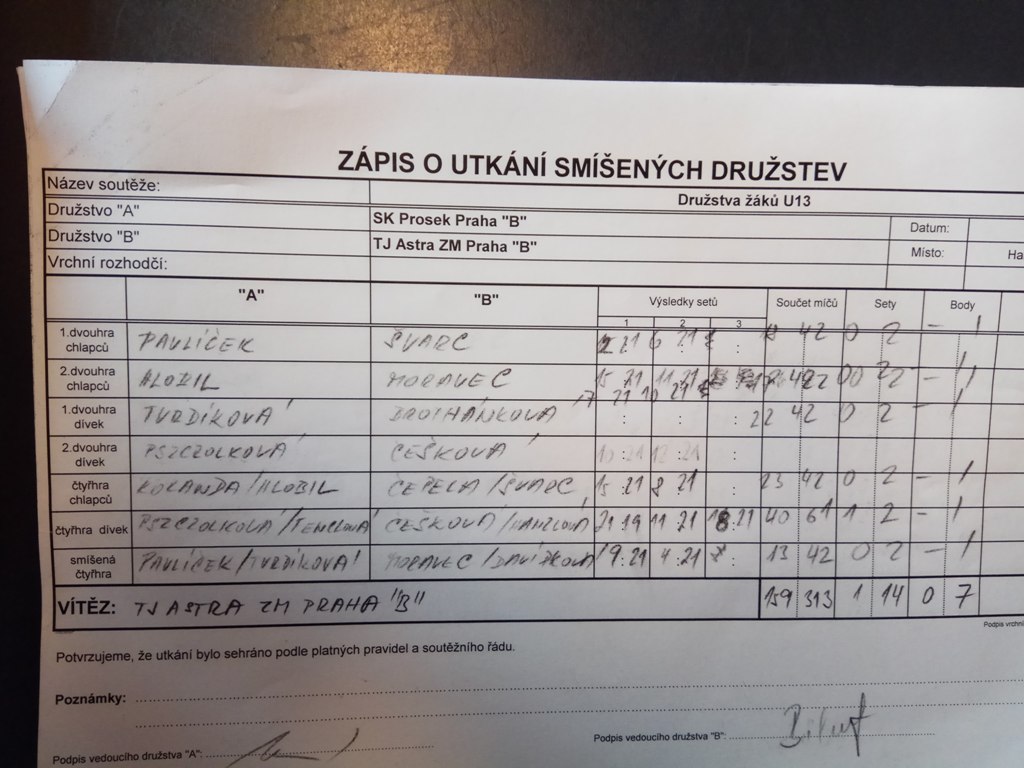 ZÁPIS O UTKÁNÍ SMÍŠENÝCH DRUŽSTEV
Název soutěže: Družstva žáků U13
Družstvo "A" SK Prosek Praha "B" Datum:
Družstvo "B" TJ Astra ZM Praha "B" Místo: Ha
Vrchní rozhodčí:
"A" "B" Výsledky setů Součet míčů Sety Body
1 2 3
1.dvouhra chlapců PAVLÍČEK ŠVARC 21 6 21 : 42 0 2 - 1
2.dvouhra chlapců HLOBIL MORAVEC 15 21 11 21 42 0 2 - 1
17 21 10 21
1.dvouhra dívek TVRDÍKOVÁ : : : 22 42 0 2 - 1
2.dvouhra dívek PSZCZOLKOVÁ ČEŠKOVÁ :21 :21 :
čtyřhra chlapců KOLANDA/HLOBIL ČEPELA/ŠVARC 15 21 8 21 : 23 42 0 2 - 1
čtyřhra dívek PSZCZOLKOVÁ/TEMLOVÁ ČEŠKOVÁ/HANZLOVÁ 21 19 11 21 8 21 40 61 1 2 - 1
smíšená čtyřhra PAVLÍČEK/TVRDÍKOVÁ MORAVEC 9:21 4:21 : 13 42 0 2 - 1
VÍTĚZ: TJ ASTRA ZM PRAHA "B" 159 313 1 14 0 7
Podpis vrchní
Potvrzujeme, že utkání bylo sehráno podle platných pravidel a soutěžního řádu.
Poznámky:
Podpis vedoucího družstva "A": Podpis vedoucího družstva "B":